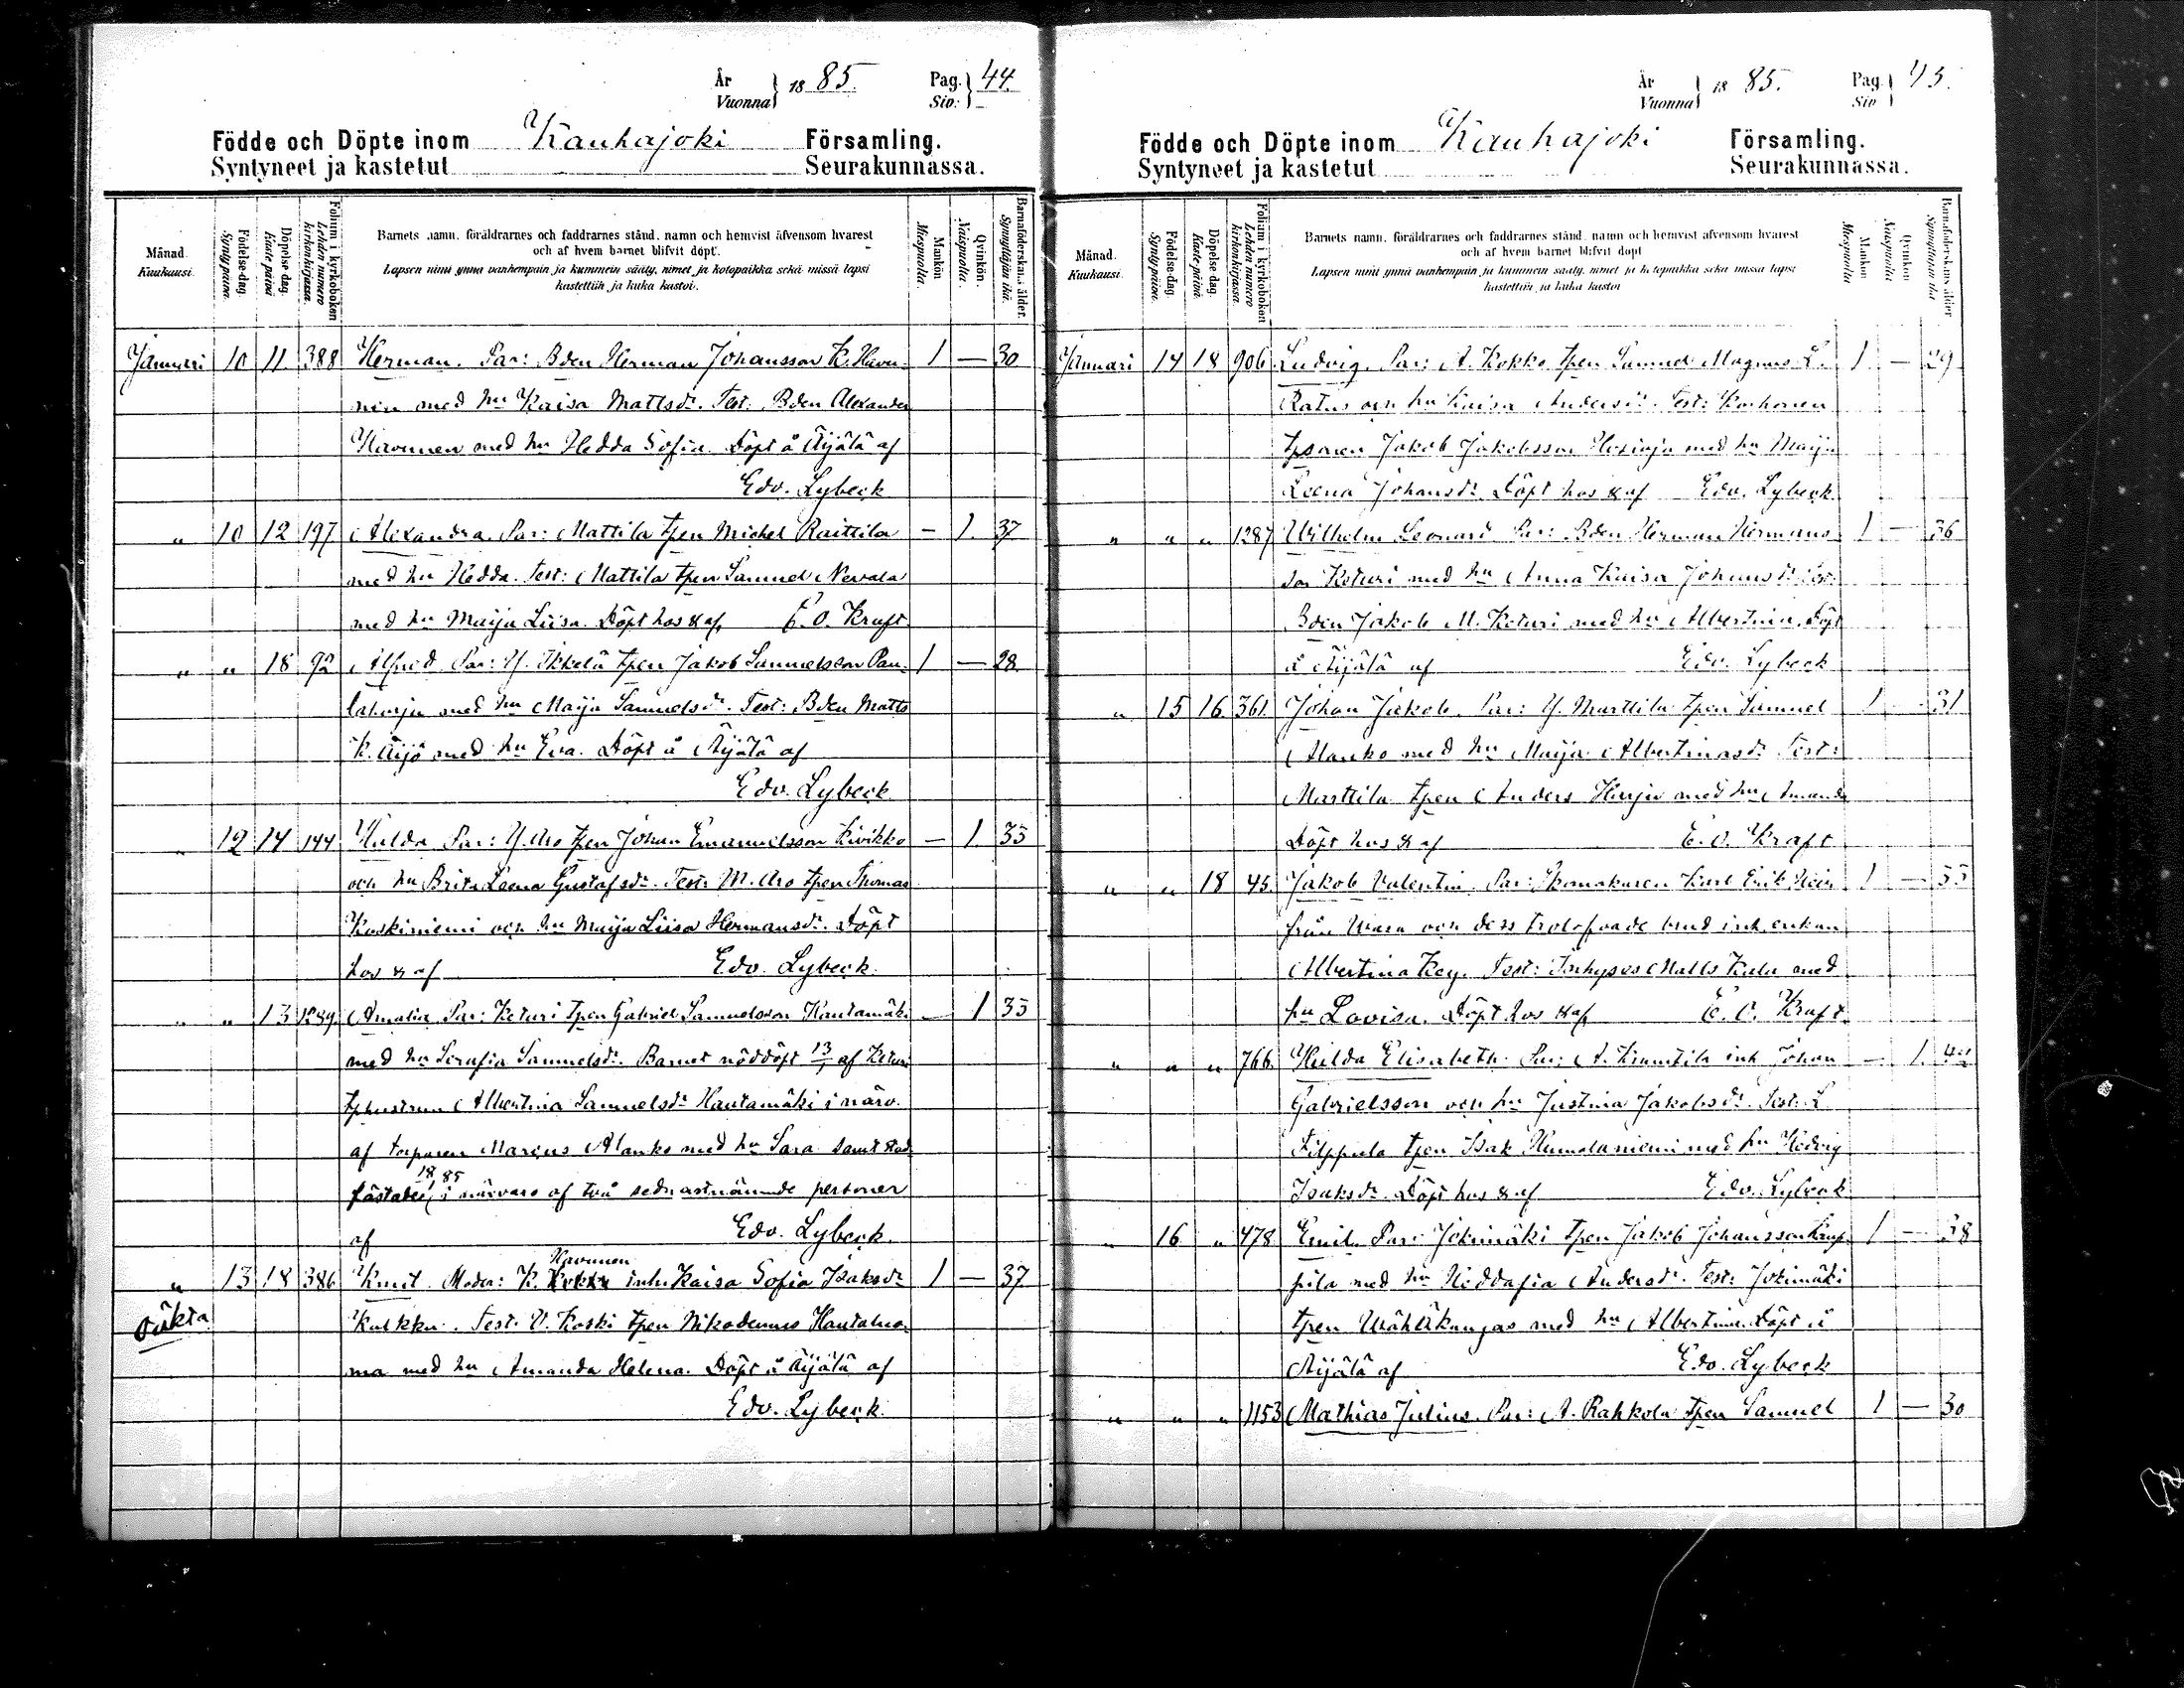 År
Vuonna } 1885. Pag.
Siv. } 44.
Födde och Döpte inom Kauhajoki Församling.
Syntyneet ja kastetut Seurakunnassa.
Månad.
Kuukausi.
Födelse-dag.
Syntypäivä.
Döpelse dag.
Kaste-päivä
Folium i kyrkoboken
Lehden numero kirkonkirjassa.
Barnets namn, föräldrarnes och faddrarnes stånd, namn och hemvist äfvensom hvarest
och af hvem barnet blifvit döpt.
Lapsen nimi ynnä vanhempain ja kummein sääty, nimet ja kotopaikka sekä missä lapsi
kastettiin ja kuka kastoi.
Mankön
Miespuolia.
Qvinkön.
Naispuolia.
Barnaföderskans ålder.
Synnyttäjän ikä.
Januari 10 11. 388 Herman. Par: Bden Herman Johansson K. Havu- 1 — 30
nen med hu Kaisa Mattsdr. Test: Bden Alexander
Havunen med hu Hedda Sofia. Döpt å Äijälä af
Edv. Lybeck
" 10 12 197 Alexandra. Par: Mattila tpen Michel Raittila — 1. 37
med hu Hedda. Test: Mattila tpen Samuel Nevala
med hu Maija Liisa. Döpt hos & af E. O. Kraft
" " 18 92 Alfred. Par: Y. Ikkelä tpen Jakob Samuelsson Pau- 1 — 28
laharju med hu Maija Samuelsdr. Test: Bden Matts
K. Äijö med hu Eva. Döpt å Äijälä af
Edv. Lybeck
" 12 14 144 Hulda Par: Y. Aro tpen Johan Emanuelsson Kivikko — 1. 35
och hu Brita Leena Gustafsdr. Test: M. Aro tpen Thomas
Koskiniemi och hu Maija Liisa Hermansdr. Döpt
hos & af Edv. Lybeck.
" " 13 1289. Amalia Par: Keturi tpen Gabriel Samuelsson Hautamäki — 1 35
med hu Serafia Samuelsdr. Barnet nöddöpt 13 af Keturi
tphustrun Albertina Samuelsdr Hautamäki i närv.
af torparen Marcus Alanko med hu Sara samt stad-
fästades 18/1 85 i närvaro af två sednastnämnde personer
af Edv. Lybeck.
" 13 18 386 Knut. Moder: K. Havunen inh. Kaisa Sofia Isaksdr 1 — 37
oäkta
Kulkku. Test: V. Koski tpen Nikodemus Hautaluo-
ma med hu Amanda Helena. Döpt å Äijälä af
Edv. Lybeck.
År
Vuonna } 1885. Pag.
Siv } 45.
Födde och Döpte inom Kauhajoki Församling.
Syntyneet ja kastetut Seurakunnassa.
Månad.
Kuukausi.
Födelse-dag.
Syntypäivä.
Döpelse dag.
Kaste-päivä.
Folium i kyrkoboken
Lehden numero kirkonkirjassa.
Barnets namn, föräldrarnes och faddrarnes stånd, namn och hemvist äfvensom hvarest
och af hvem barnet blifvit döpt
Lapsen nimi ynnä vanhempain ja kummein sääty, nimet ja kotopaikka sekä missä lapsi
kastettiin ja kuka kastoi
Mankön
Miespuolia
Qvinkön
Naispuolia
Barnaföderskans ålder
Synnyttäjän ikä
Januari 14 18 906 Ludvig. Par: A. Kokko tpen Samuel Magnus L. 1. — 29
Ratus och hu Kaisa Andersdr. Test: Korhonen
tpsonen Jakob Jakobsson med hu Maija
Leena Johansdr. Döpt hos & af Edv. Lybeck
" " " 1287 Wilhelm Leonard Par: Bden Herman Hermans- 1 — 36
son Keturi med hu Anna Kaisa Johansdr Test:
Bden Jakob M. Keturi med hu Albertina. Döpt
å Äijälä af Edv. Lybeck
" 15 16. 361. Johan Jakob. Par: Y. Marttila tpen Samuel 1 — 31
Alanko med hu Maija Albertinasdr Test:
Marttila tpen Anders Harju med hu Amanda
Döpt hos & af E. O. Kraft
" " 18 45. Jakob Valentin. Par: Karl Erik 1 — 35
från Wasa och dess trolofvade brud inh. enkan
Albertina Key. Test: Inhyses Matts Kula med
hu Lovisa. Döpt hos & af E. O. Kraft.
" " " 766. Hulda Elisabeth. Par: A. inh Johan — 1.
Gabrielsson och hu Justina Jakobsdr. Test: L
Filppula tpen Isak Hemolaniemi med hu Hedvig
Isaksdr. Döpt hos & af Edv. Lybeck
" 16 " 478 Emil. Par: Jokimäki tpen Jakob Johansson Kamp- 1 — 38
pila med hu Heddafia Andersdr. Test: Jokimäki
tpen Wähäkangas med hu Albertina. Döpt å
Äijälä af Edv. Lybeck
" " " 1153 Mathias Julius. Par: A. Rahkola tpen Samuel 1 — 30